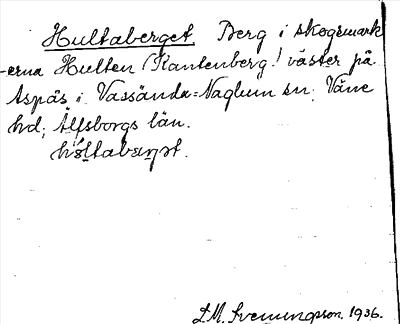 Hultaberget. Berg i skogsmark
-erna Hulten (Kantenberg) väster på
Aspås i Vassända-Naglum sn; Väne
hd; Älfsborgs län.
D.M. Svenungsson. 1936.